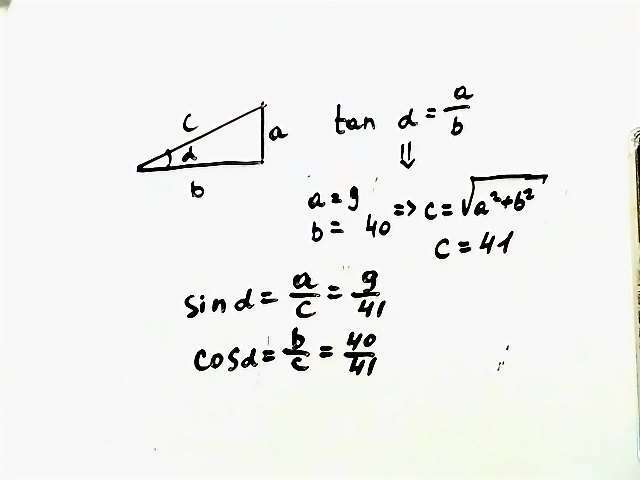 c
a
d
b
tan d = a/b
⇓
a = 9
b = 40 => c = √(a²+b²)
c = 41
sin d = a/c = 9/41
cos d = b/c = 40/41